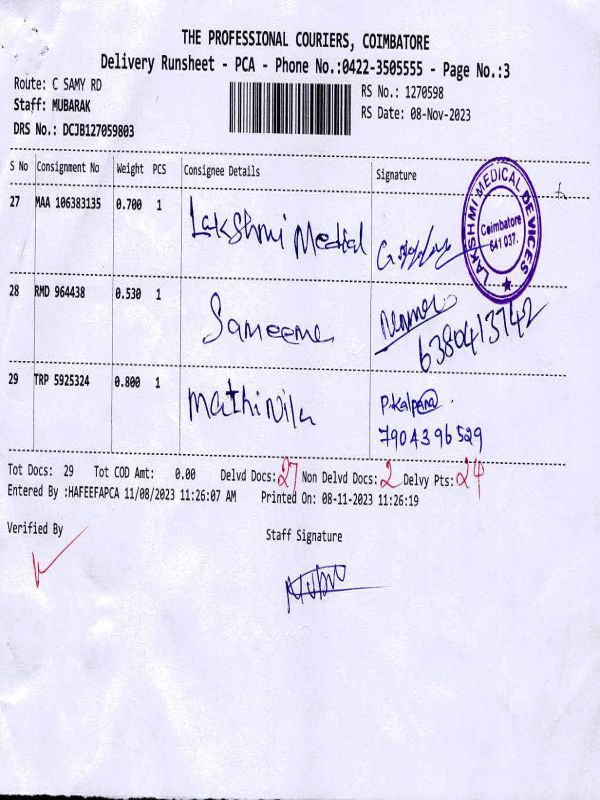 THE PROFESSIONAL COURIERS, COIMBATORE
Delivery Runsheet - PCA - Phone No.:0422-3505555 - Page No.:3
Route: C SAMY RD
RS No.: 1270598
Staff: MUBARAK
RS Date: 08-Nov-2023
DRS No.: DCJB127059803
S No Consignment No Weight PCS Consignee Details Signature
27 MAA 106383135 0.700 1 Lakshmi Medical
LAKSHMI MEDICAL DEVICES
Coimbatore
641 037.
28 RMD 964438 0.530 1 Sameena
6380413742
29 TRP 5925324 0.800 1 Mathinila P.Kalpana
7904396529
Tot Docs: 29 Tot COD Amt: 0.00 Delvd Docs: 27 Non Delvd Docs: 2 Delvy Pts: 24
Entered By :HAFEEFAPCA 11/08/2023 11:26:07 AM Printed On: 08-11-2023 11:26:19
Verified By Staff Signature